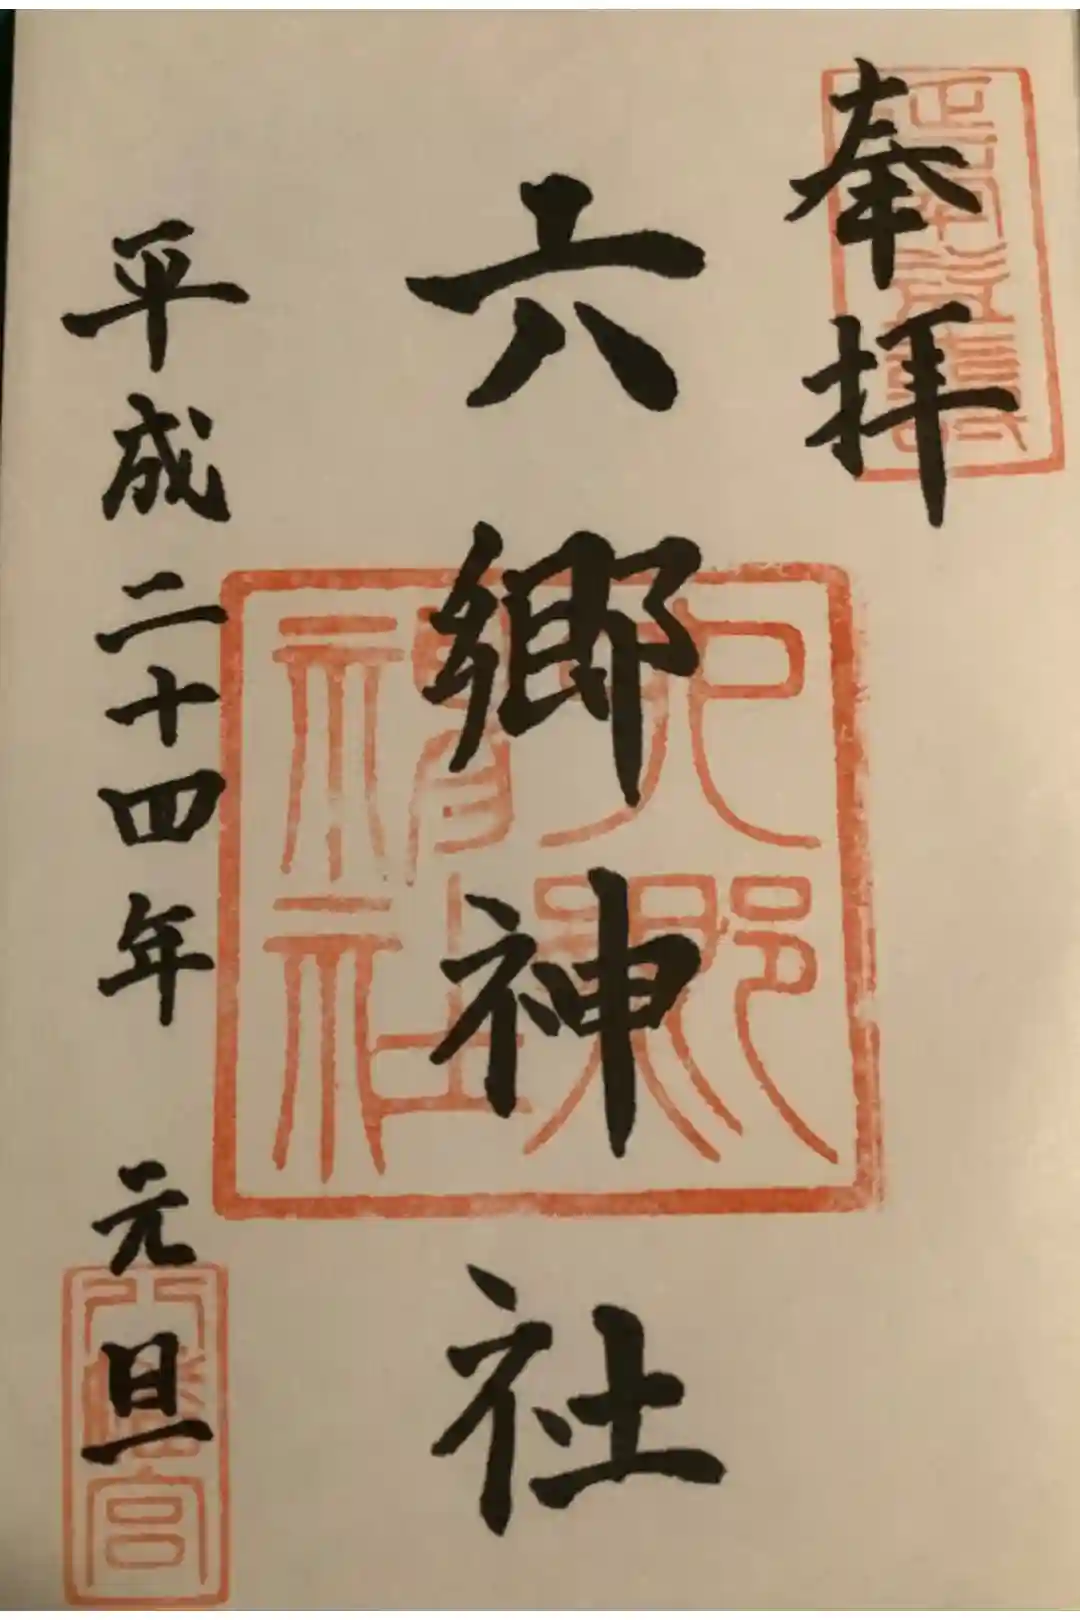 奉拝
六郷神社
平成二十四年 元旦
六郷神社
八幡宮